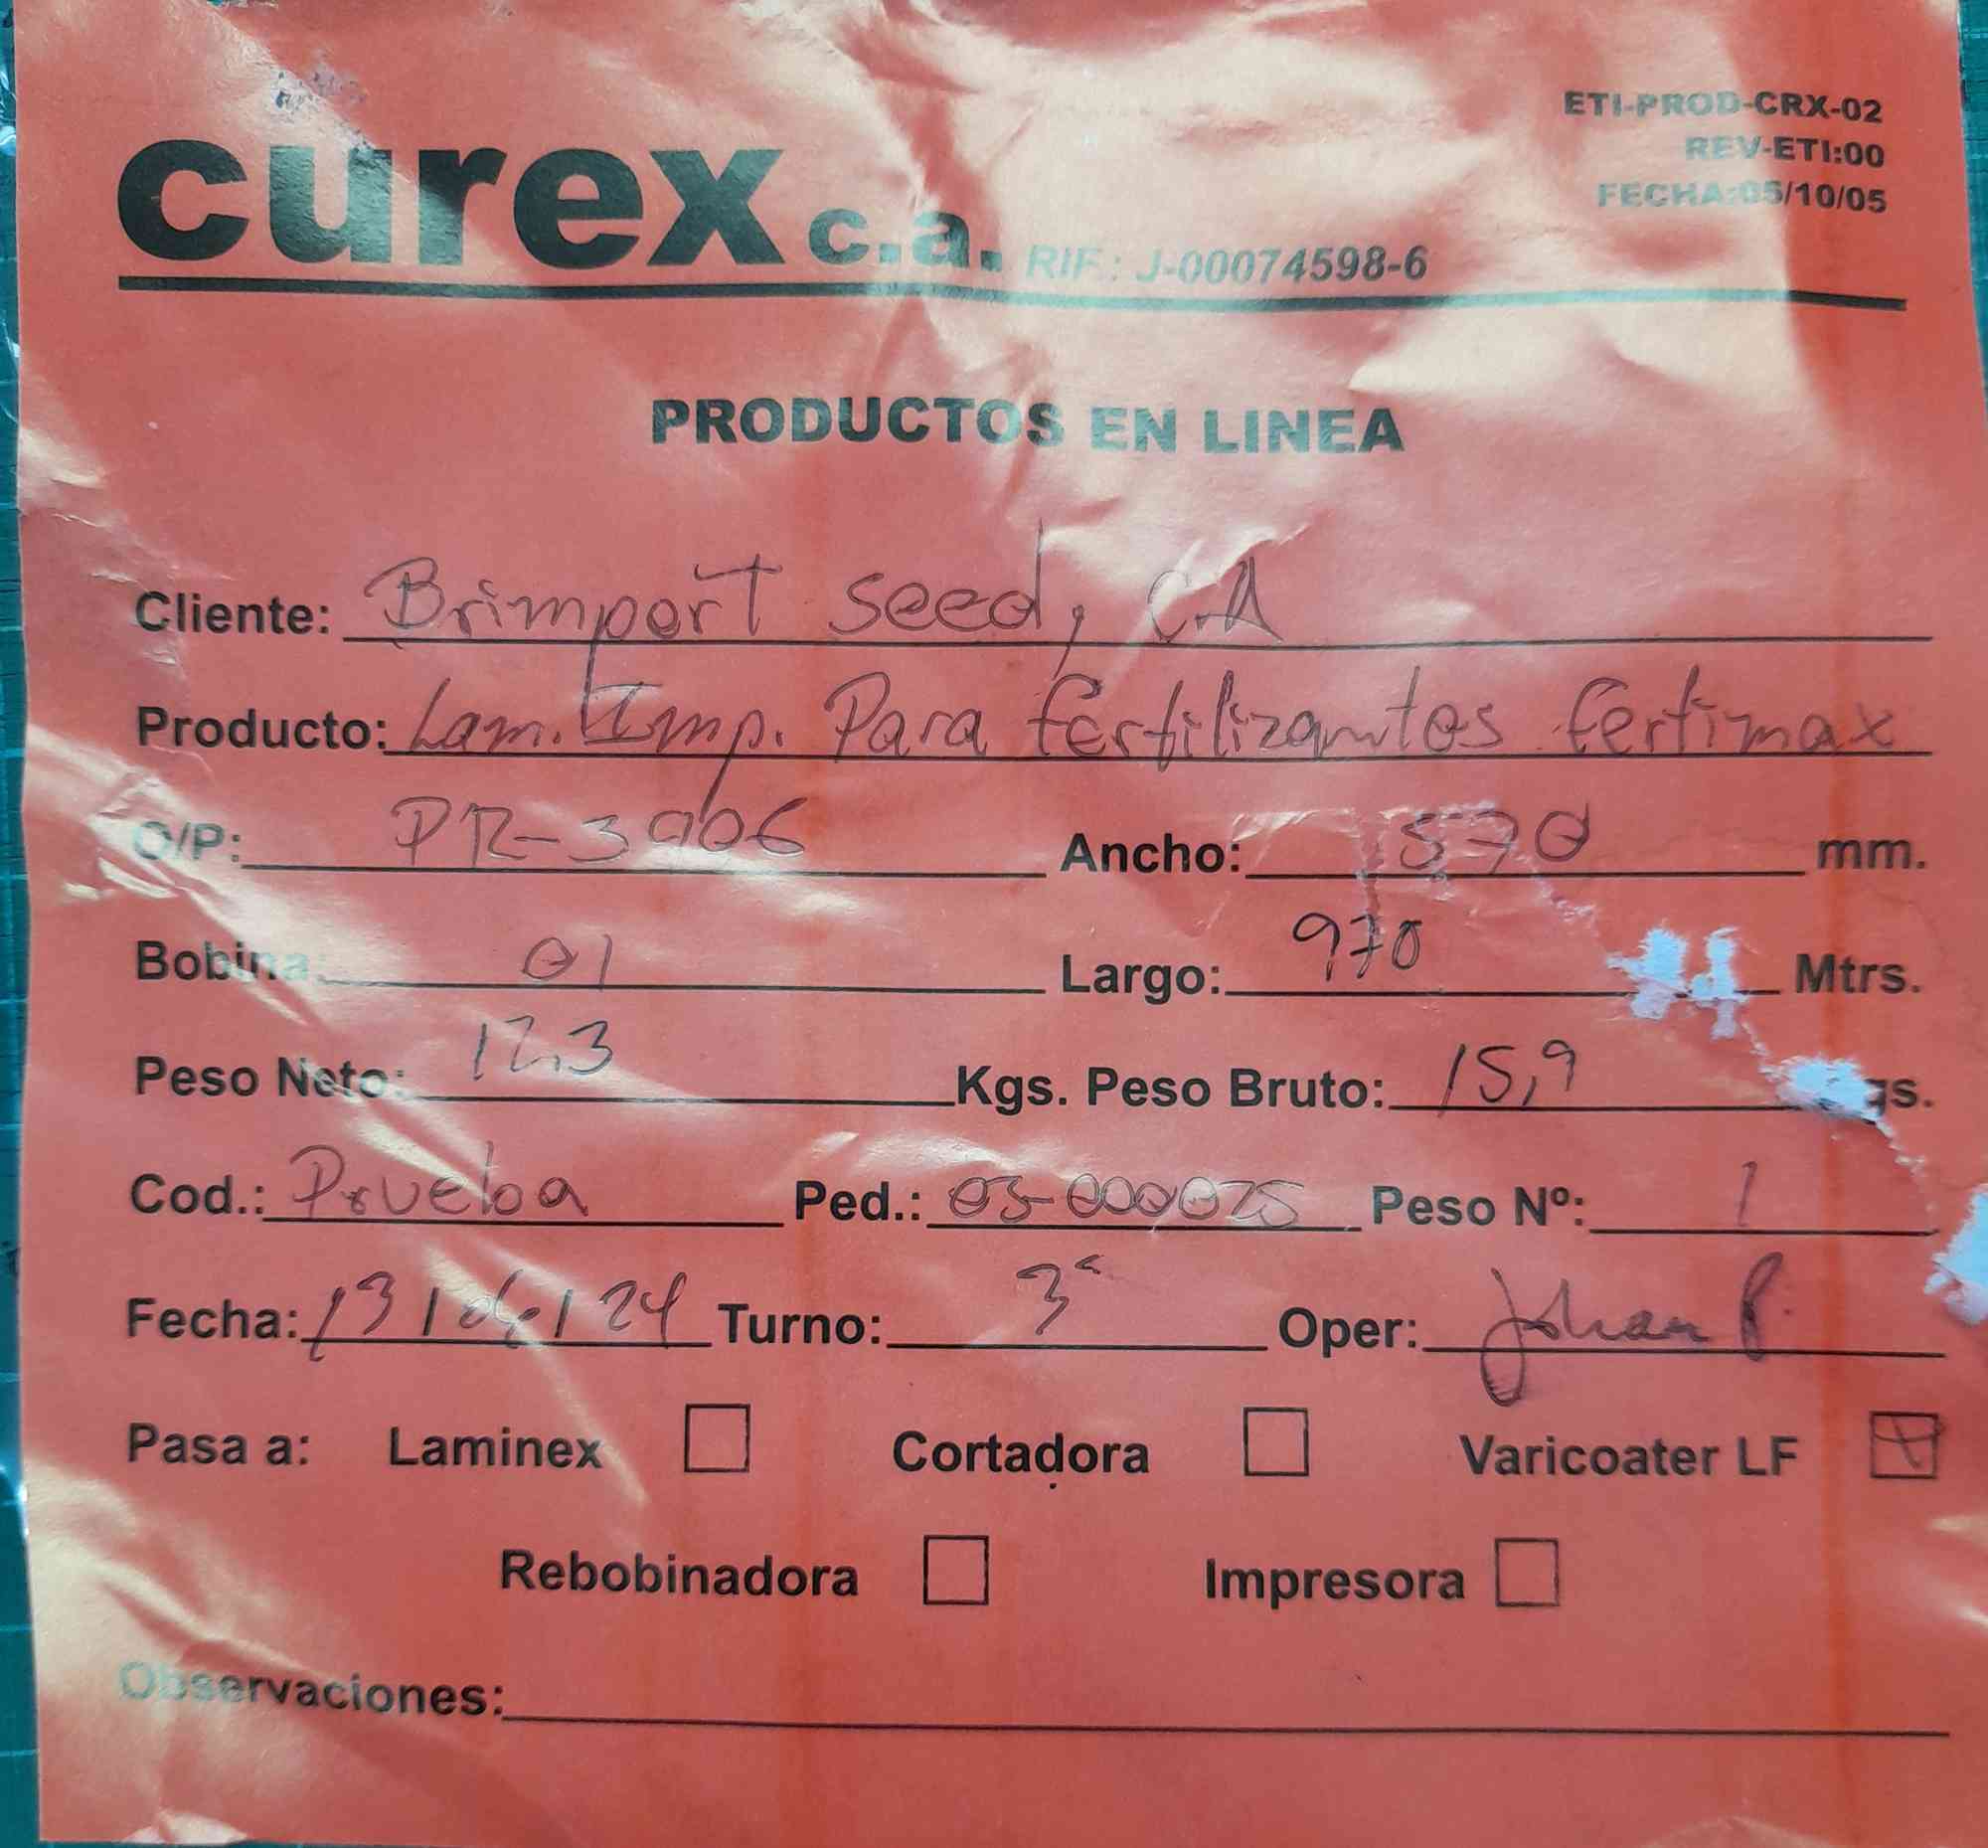 ETI-PROD-CRX-02
REV-ETI:00
FECHA:05/10/05
curex c.a. RIF: J-00074598-6
PRODUCTOS EN LINEA
Cliente: Brimport Seed, C.A
Producto: Lam. Imp. Para fertilizantes fertimax
O/P: PR-3906 Ancho: 570 mm.
Bobina: 01 Largo: 970 Mtrs.
Peso Neto: 12,3 Kgs. Peso Bruto: 15,9 gs.
Cod.: Prueba Ped.: 03-000025 Peso Nº: 1
Fecha: 13/06/24 Turno: 3ª Oper: Johan P.
Pasa a: Laminex Cortadora Varicoater LF
Rebobinadora Impresora
Observaciones: